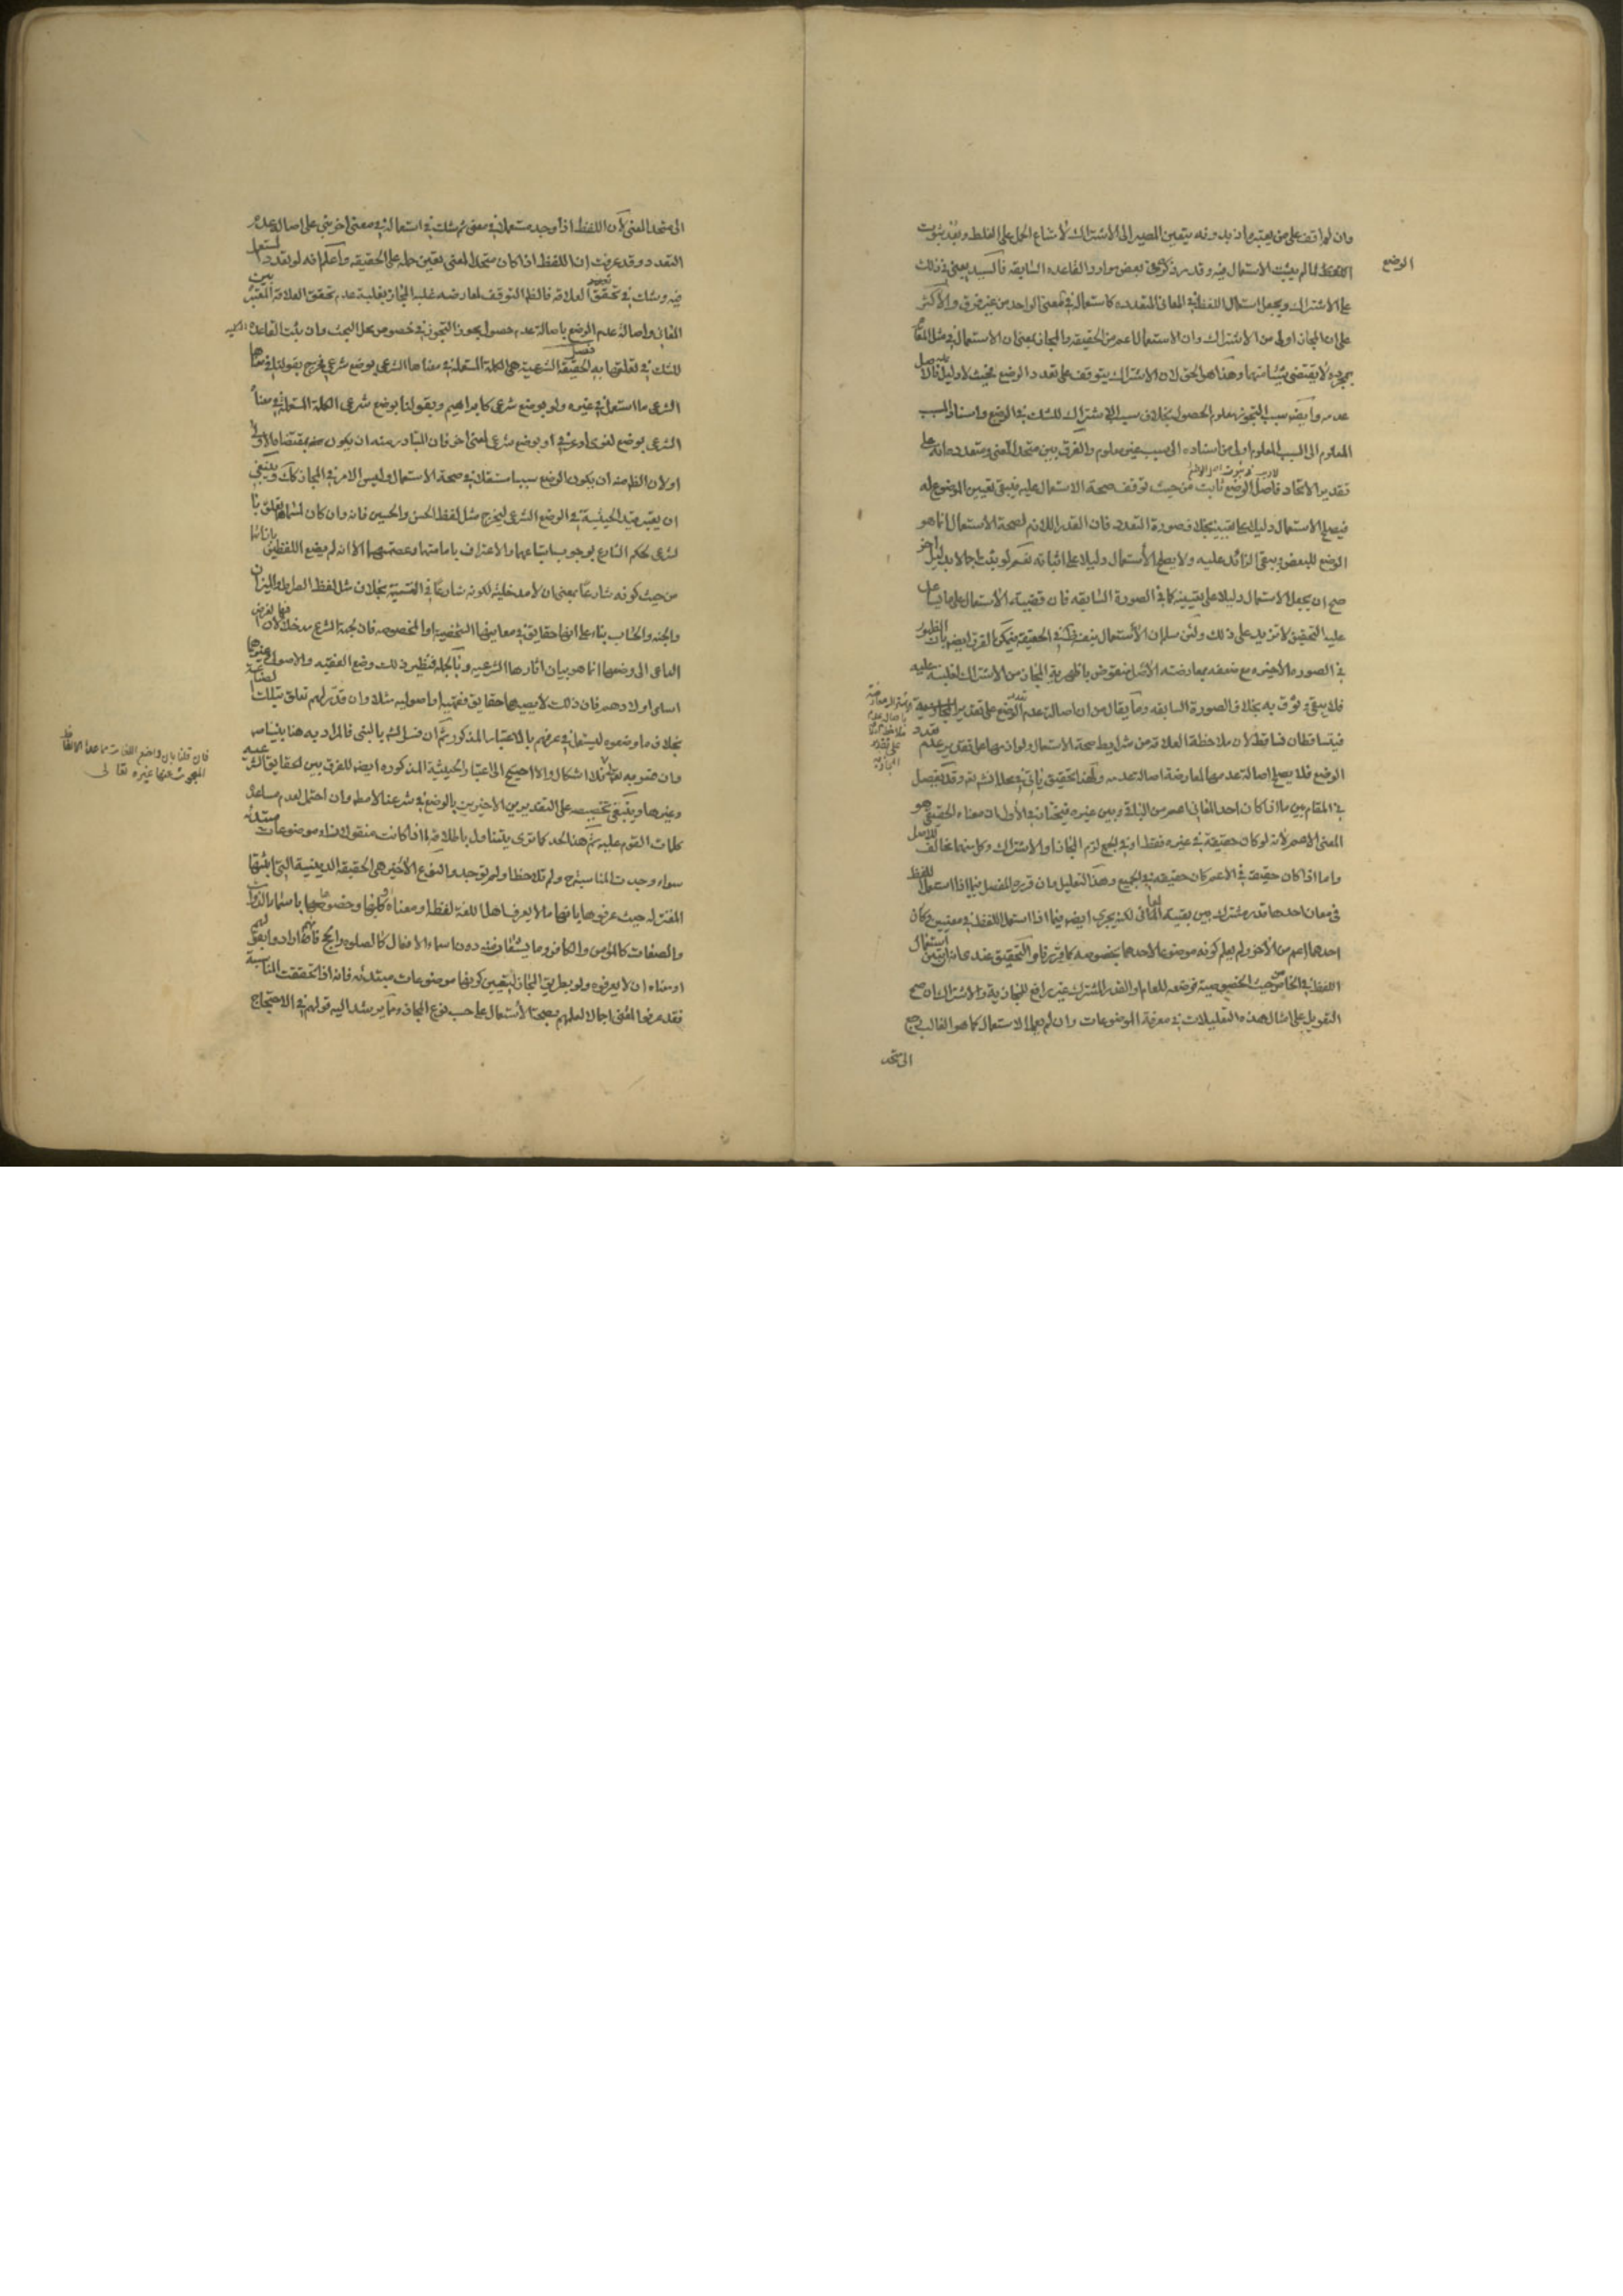 وان لم اقف على من يعتبره اذ بدونه يتعين المصير الى الاشتراك لامتناع الحمل على الغلط وبعد ثبوت
الوضع
لما لم يثبت الاستعمال فيه وقد مر ذكره في بعض موارد القاعدة السابقه فالسيد يعنى في ذلك
على الاشتراك ويجعل استعمال اللفظ في المعانى المتعدده كاستعماله في المعنى الواحد من غير فرق والاكثر
على ان المجاز اولى من الاشتراك وان الاستعمال اعم من الحقيقه والمجاز بمعنى ان الاستعمال في مثل المقام
بمجرده لا يقتضى شيئا منهما وهذا هو الحق لان الاشتراك يتوقف على تعدد الوضع فحيث لا دليل عليه فالاصل
عدمه وايضا سبب التجوز معلوم الحصول بخلاف سبب الاشتراك للشك في الوضع واسناد المسبب
المعلوم الى السبب المعلوم اولى من اسناده الى سبب غير معلوم والفرق بين متحد المعنى ومتعدده انه على
تقدير الاتحاد فاصل الوضع ثابت من حيث توقف صحة الاستعمال عليه فيبقى تعيين الموضوع له
فيصلح الاستعمال دليلا على تعيينه بخلاف صورة التعدد فان القدر اللازم لصحة الاستعمال انما هو
الوضع للبعض ويبقى الزائد عليه ولا يصلح الاستعمال دليلا على اثباته نعم لو ثبت اجمالا بدليل اخر
صح ان يجعل الاستعمال دليلا على تعيينه كما في الصورة السابقه فان قضيته الاستعمال على ما يساعد
عليه التحقيق لا تزيد على ذلك ولئن سلم ان الاستعمال بنفسه في الحقيقة فيمكن الفرق ايضا بان الظهور
في الصورة الاخيره مع ضعفه بمعارضته الاصل منقوض باظهرية المجاز من الاشتراك لغلبته عليه
فلا يبقى وثوق به بخلاف الصورة السابقه وما يقال من ان اصالة عدم تعدد الوضع على تقدير المجازية
فيتساقطان فساقط لان ملاحظة العلاقة من شرايط صحة الاستعمال ولوازمها على تقدير عدم تعدد
الوضع فلا يصلح اصالة عدمها لمعارضة اصالة عدمه ولهذا تحقيق ياتى في محله انش تعه وقد يفصل
في المقام بين ما اذا كان احد المعانى اعم من البقية وبين غيره فيختار في الاول ان معناه الحقيقى هو
المعنى الاعم لانه لو كان حقيقة في غيره فقط او في الجميع لزم المجاز او الاشتراك وكل منهما مخالف للاصل
واما اذا كان حقيقة في الاعم كان حقيقة في الجميع وهذا التعليل وان قرره المفصل فيما اذا استعمل اللفظ
في معان احدها قدر مشترك بين بقية المعانى لكنه يجرى ايضا فيما اذا استعمل اللفظ في معنيين وكان
احدهما اعم من الاخر ولم يعلم كونه موضوعا لاحدهما بخصوصه كما قرر فان التحقيق عندى ان استعمال
اللفظ في الخاص من حيث الخصوصية فوضعه للعام او القدر المشترك غير رافع للمجازية والاشتراك ان صح
التعويل على امثال هذه التعليلات في معرفة الموضوعات وان لم يعلم الاستعمال كما هو الغالب رجع
الى متحد
الى متحد المعنى لان اللفظ اذا وجد مستعملا في معنى ثم شك في استعماله في معنى اخر بنى على اصالة عدم
التعدد وقد عرفت ان اللفظ اذا كان متحد المعنى تعين حمله على الحقيقه واعلم انه لو تعدد المستعمل
فيه وشك في تحقق العلاقة فالظاهر التوقف لمعارضه غلبة المجاز بغلبة عدم تحقق العلاقة المعتبره بين
المعانى واصالة عدم الوضع باصالة عدم حصول مجوز التجوز في خصوص محل البحث وان بنيت القاعدة
للشك في تعلقها به
فصل
الحقيقة الشرعية هى الكلمة المستعملة في معناها الشرعى بوضع شرعى فخرج بقولنا في معناها
الشرعى ما استعمل في غيره ولو بوضع شرعى كابراهيم وبقولنا بوضع شرعى الكلمة المستعملة في معناها
الشرعى بوضع لغوى او عرفى او بوضع شرعى لمعنى اخر فان المتبادر منه ان يكون بمقتضاه
او لان الظ منه ان يكون الوضع سببا مستقلا في صحة الاستعمال وليس الامر في المجاز كك وينبغى
ان يعتبر قيد الحيثية في الوضع الشرعى ليخرج مثل لفظ الحسن والحسين فانه وان كان لمسماهما تعلق
لشرعى لحكم الشارع بوجوب اتباعهما والاعتراف بامامتهما وعصمتهما الا انه لم يضع اللفظين بازائهما
من حيث كونه شارعا بمعنى ان لا مدخلية لكونه شارعا في التسمية بخلاف مثل لفظ الصراط والميزان
والجنة والحساب بناء على انها حقايق في معانيها الشخصية او المخصوصه فان لجهة الشرع مدخلا فيها لان الغرض
الداعى الى وضعها انما هو بيان اثارها الشرعيه وبالجملة فنظير ذلك وضع الفقيه والاصولى وغيرهما
اسامى اولادهم فان ذلك لا يصيرها حقايق فقهية او اصوليه مثلا وان قدر لهم تعلق بتلك الصناعة
بخلاف ما وضعوه ليستعمل في عرفهم بالاعتبار المذكور ثم ان فسر الشارع بالنبى فالمراد به هنا نبينا ص
وان خصوه به تعالى فلا اشكال والا احتيج الى اعتبار الحيثية المذكوره ايضا للفرق بين الحقايق الشرعيه
وغيرها وينبغى تخصيصه على التقديرين الاخيرين بالوضع في شرعنا الاسلام وان احتمل لعدم مساعدة
كلمات القوم عليه ثم هذا الحد كما ترى يتناول باطلاقه ما اذا كانت منقولات او موضوعات مبتدئه
سواء وجدت المناسبة ولم تلاحظ او لم توجد والنوع الاخير هى الحقيقة الدينية التى اثبتها
المعتزلة حيث عرفوها بانها ما لا يعرف اهل اللغة لفظها او معناه او كليهما وخصوها باسماء الذوات
والصفات كالمؤمن والكافر وما يشتقان منه دون اسماء الافعال كالصلوة والحج فانهم ارادوا بقولهم
او معناه ان لا يعرفوه ولو بطريق المجاز ليتعين كونها موضوعات مبتدئه فانه اذا تحققت المناسبة
فقد عرفوا المعنى اجمالا لعلمهم بصحة الاستعمال على حسب نوع المجاز وما يرشد اليه قولهم في الاحتجاج
فان قلنا بان واضع اللغات ما عدا الالفاظ
المبحوث عنها غيره تعالى